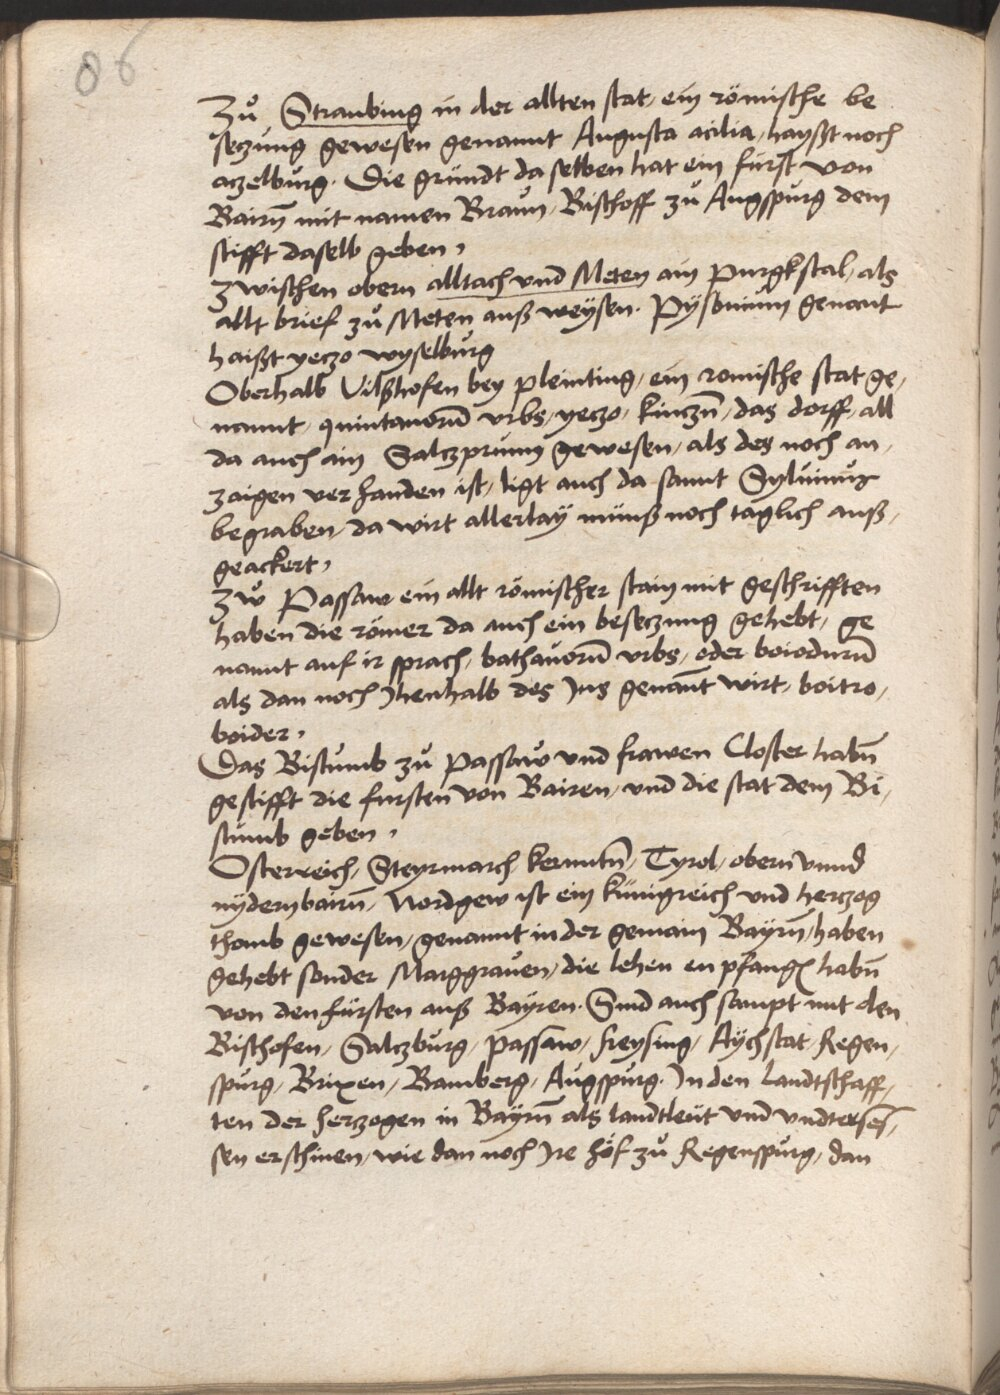 86
Zů Straubing in der allten stat, ein römische be
seczung gewesen genannt Augusta acilia, haysst noch
aczelburg. Die gründt da selben hat ein fürst von
Bairn̄ mit namen Braun, Bischoff zů Augspurg dem
stifft daselb geben,
Zwischen obern alltach vnd Meten ain purgkstal, als
allt brief zů Meten auß weysen. Pysonium genant
haißt yeczo wyselburg
Oberhalb Vilßhofen bey pleinting, ein romische stat ge,
nannt, quintanorū vrbs, yeczo, kinczn̄, das dorff, all
da auch ain Salczprunn gewesen, als des noch an,
zaigen verhanden ist, ligt auch da sannt Syluinus
begraben, da wirt allerlaÿ münß noch täglich auß,
geackert,
Zẘ Passaw ein allt römischer stain mit geschrifften
haben die römer da auch ein beseczung gehebt, ge
nannt auf ir sprach, bathauorū vrbs, oder boiodurū
als dan noch Jhenhalb des Jns genant wirt, boitro,
boider,
Das Bistumb zů passaw vnd frawen Closter habn̄
gestifft die fursten von Bairen, vnd die stat dem Bi,
stumb geben,
Osterreich, Steyrmarch, kernntn̄, Tyrol, obern vnnd
nydernbairn̄, Nordgew ist ein künigreich vnd herczog
thomb gewesen, genannt in der gemain Bayrn̄, haben
gehebt sonder Marggrauen, die lehen enpfangn̄ habn̄
von den fürsten auß Bayren. Sind auch sampt mit den
Bischofen, Salczburg, passaw, freysing, Aychstat, Regen,
spurg, Brixen, Bamberg, Augspurg. Jn den Landtschaff,
ten der herczogen in Bayrn̄ als landtleüt vnd vndterses,
sen erschinen, wie dan noch Jre höf zů Regenspurg, dan